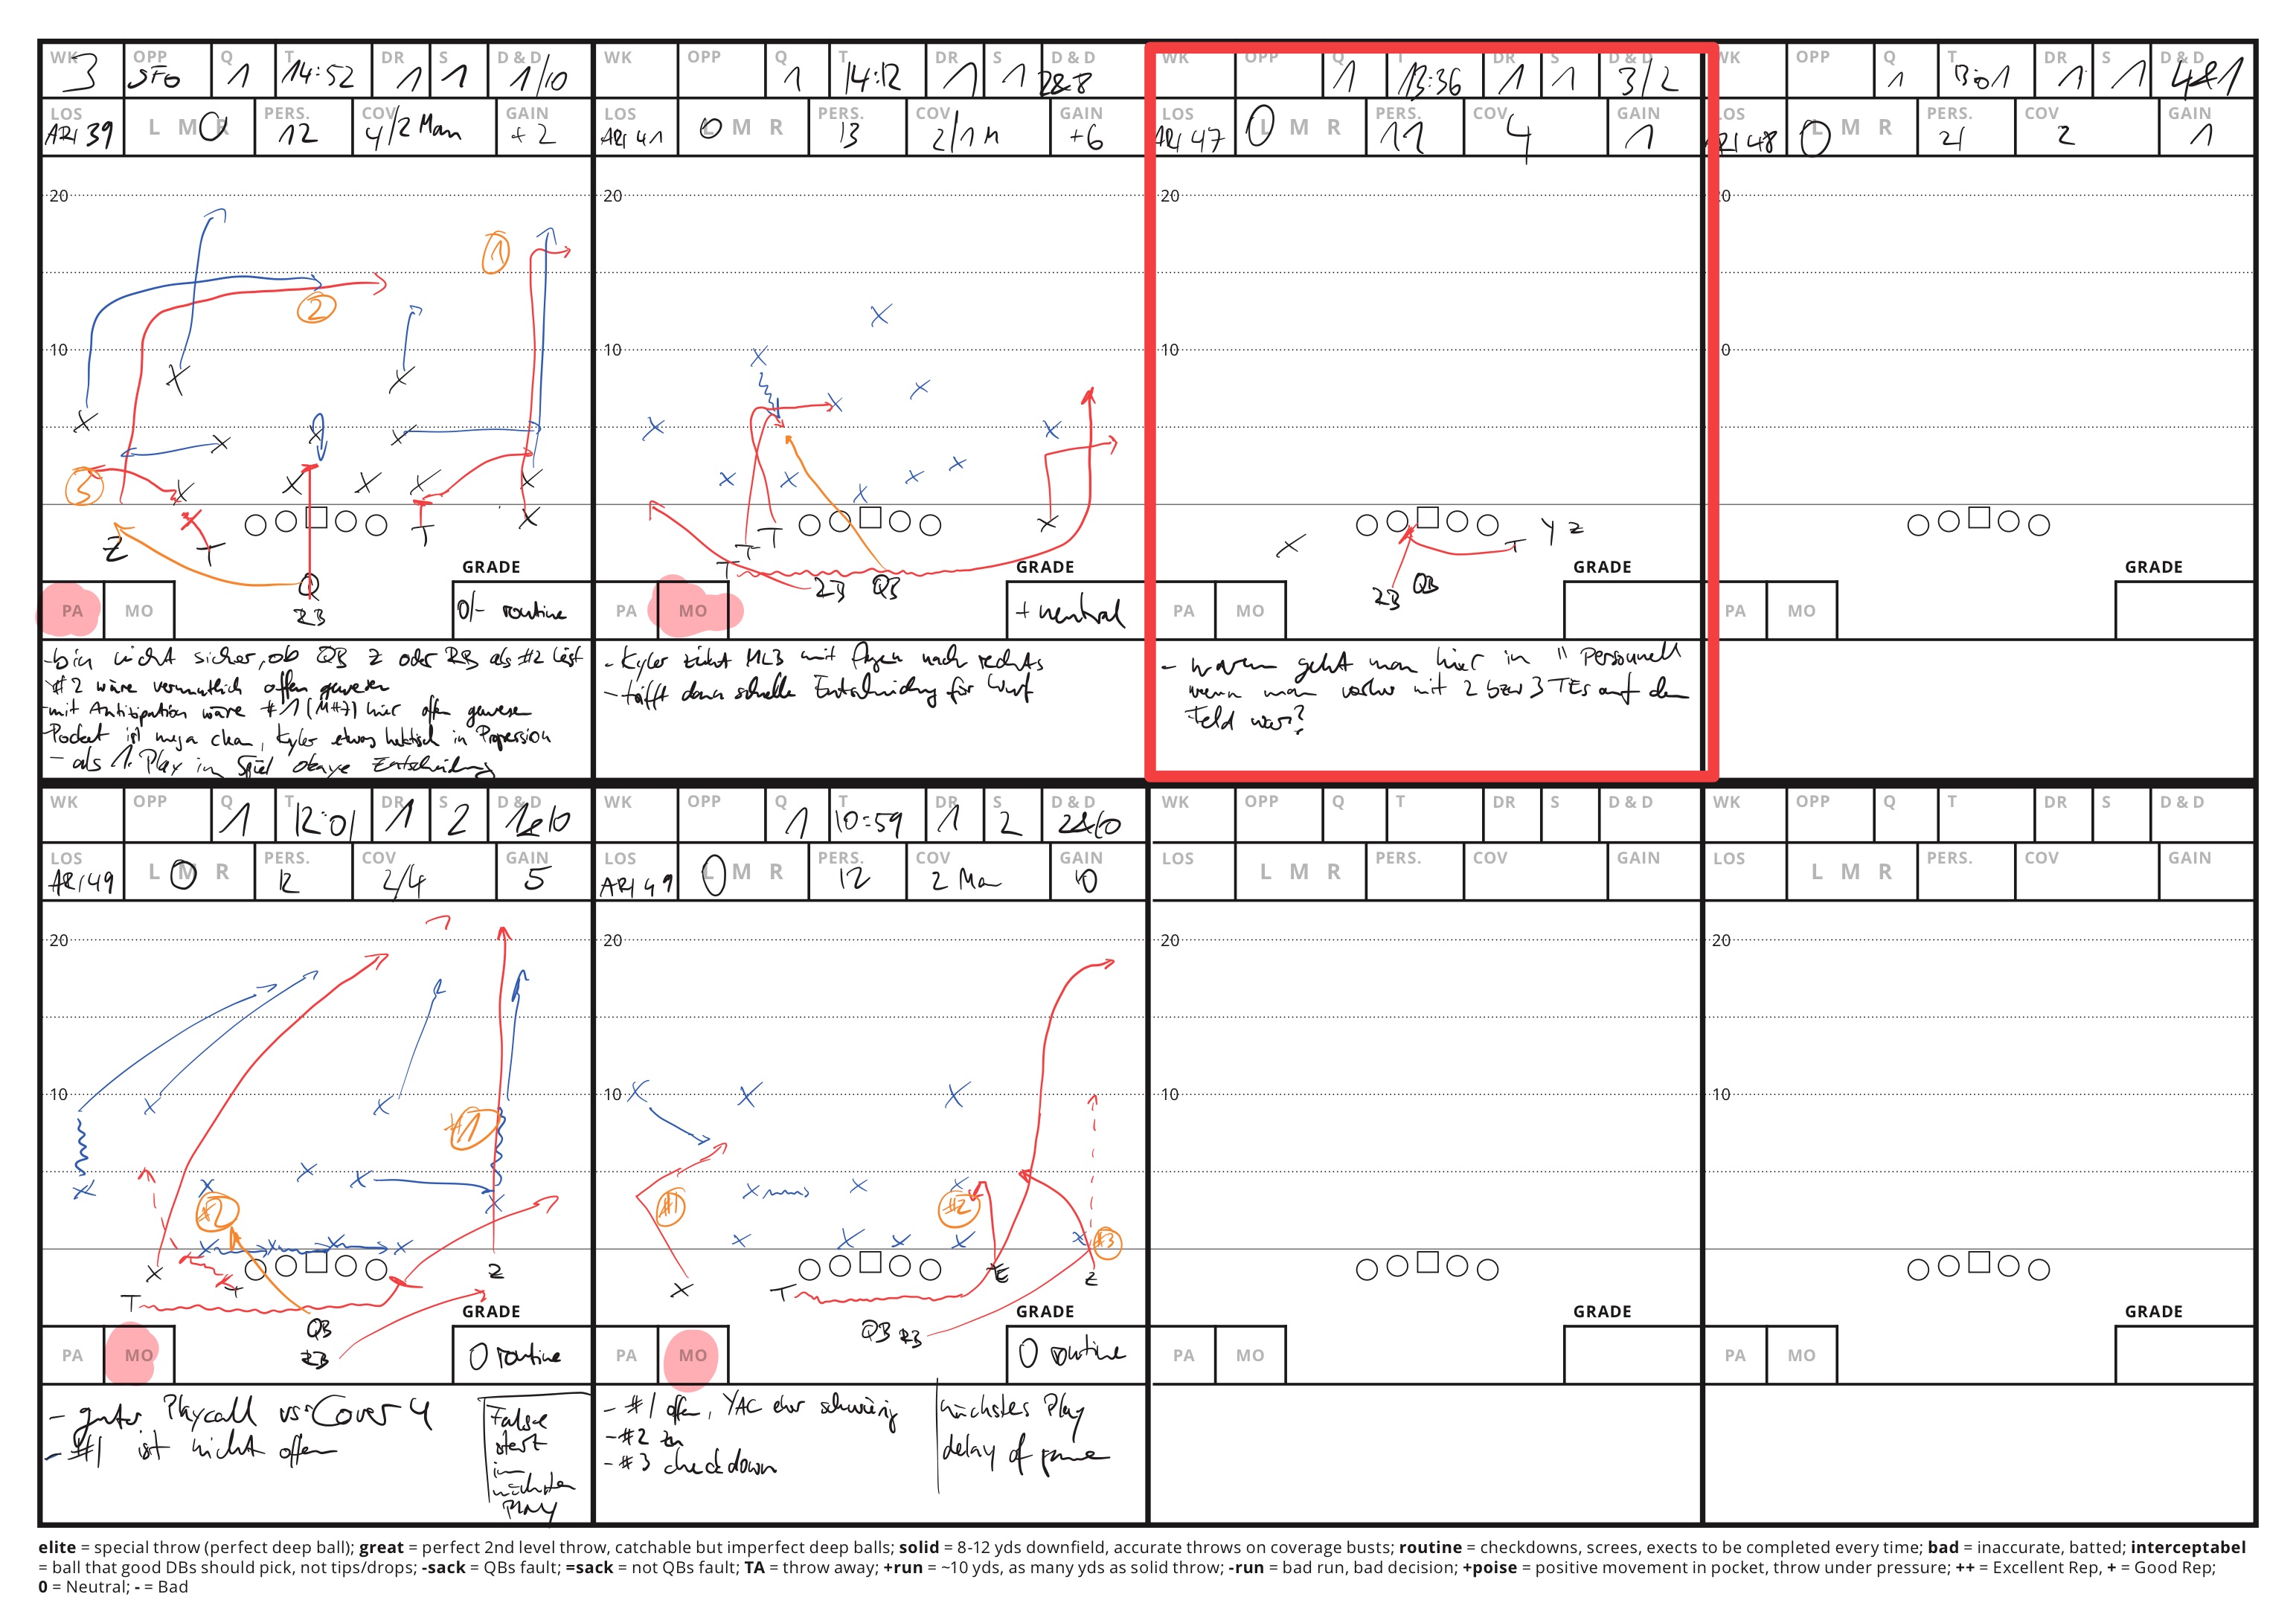 WK 3 OPP SFO Q 1 T 14:52 DR 1 S 1 D & D 1/10
LOS ARI 39 L M R O PERS. 12 COV 4/2 Man GAIN + 2
20
1
2
10
3
Z T T X
Q
RB
GRADE
PA MO 0/- routine
-bin nicht sicher, ob QB Z oder RB als #2 liest
- #2 wäre vermutlich offen gewesen
-mit Antizipation wäre #1 hier offen gewesen
Pocket ist mega clean, Kyler etwas hektisch in Progression
- als 1. Play im Spiel okaye Entscheidung
WK OPP Q 1 T 14:12 DR 1 S 1 D & D 2&8
LOS ARI 41 L M R PERS. 13 COV 2/1 M GAIN +6
20
10
T T T X
RB QB
GRADE
PA MO + neutral
- Kyler zieht MLB mit Augen nach rechts
- trifft dann schnelle Entscheidung für Wurf
WK OPP Q 1 T 13:36 DR 1 S 1 D & D 3/2
LOS ARI 47 L M R PERS. 11 COV 4 GAIN 1
20
10
X T Y Z
RB QB
GRADE
PA MO
- warum geht man hier in 11 Personnell
wenn man vorher mit 2 bzw 3 TEs auf dem
Feld war?
WK OPP Q 1 T 13:01 DR 1 S 1 D & D 4&1
LOS ARI 48 L M R PERS. 21 COV 2 GAIN 1
20
10
GRADE
PA MO
WK OPP Q 1 T 12:01 DR 1 S 2 D & D 1&10
LOS ARI 49 L M R PERS. 12 COV 2/4 GAIN 5
20
10
#1
#2
X T T Z
QB
RB
GRADE
PA MO 0 routine
- guter Playcall vs Cover 4
- #1 ist nicht offen
False
start
im
nächsten
Play
WK OPP Q 1 T 10:59 DR 1 S 2 D & D 2&10
LOS ARI 49 L M R PERS. 12 COV 2 Man GAIN 0
20
10
#1 #2 #3
X T Z
QB RB
GRADE
PA MO 0 routine
- #1 offen, YAC eher schwierig
- #2 zu
- #3 checkdown
nächstes Play
delay of game
WK OPP Q T DR S D & D
LOS L M R PERS. COV GAIN
20
10
GRADE
PA MO
WK OPP Q T DR S D & D
LOS L M R PERS. COV GAIN
20
10
GRADE
PA MO
elite = special throw (perfect deep ball); great = perfect 2nd level throw, catchable but imperfect deep balls; solid = 8-12 yds downfield, accurate throws on coverage busts; routine = checkdowns, screes, exects to be completed every time; bad = inaccurate, batted; interceptabel
= ball that good DBs should pick, not tips/drops; -sack = QBs fault; =sack = not QBs fault; TA = throw away; +run = ~10 yds, as many yds as solid throw; -run = bad run, bad decision; +poise = positive movement in pocket, throw under pressure; ++ = Excellent Rep, + = Good Rep;
0 = Neutral; - = Bad